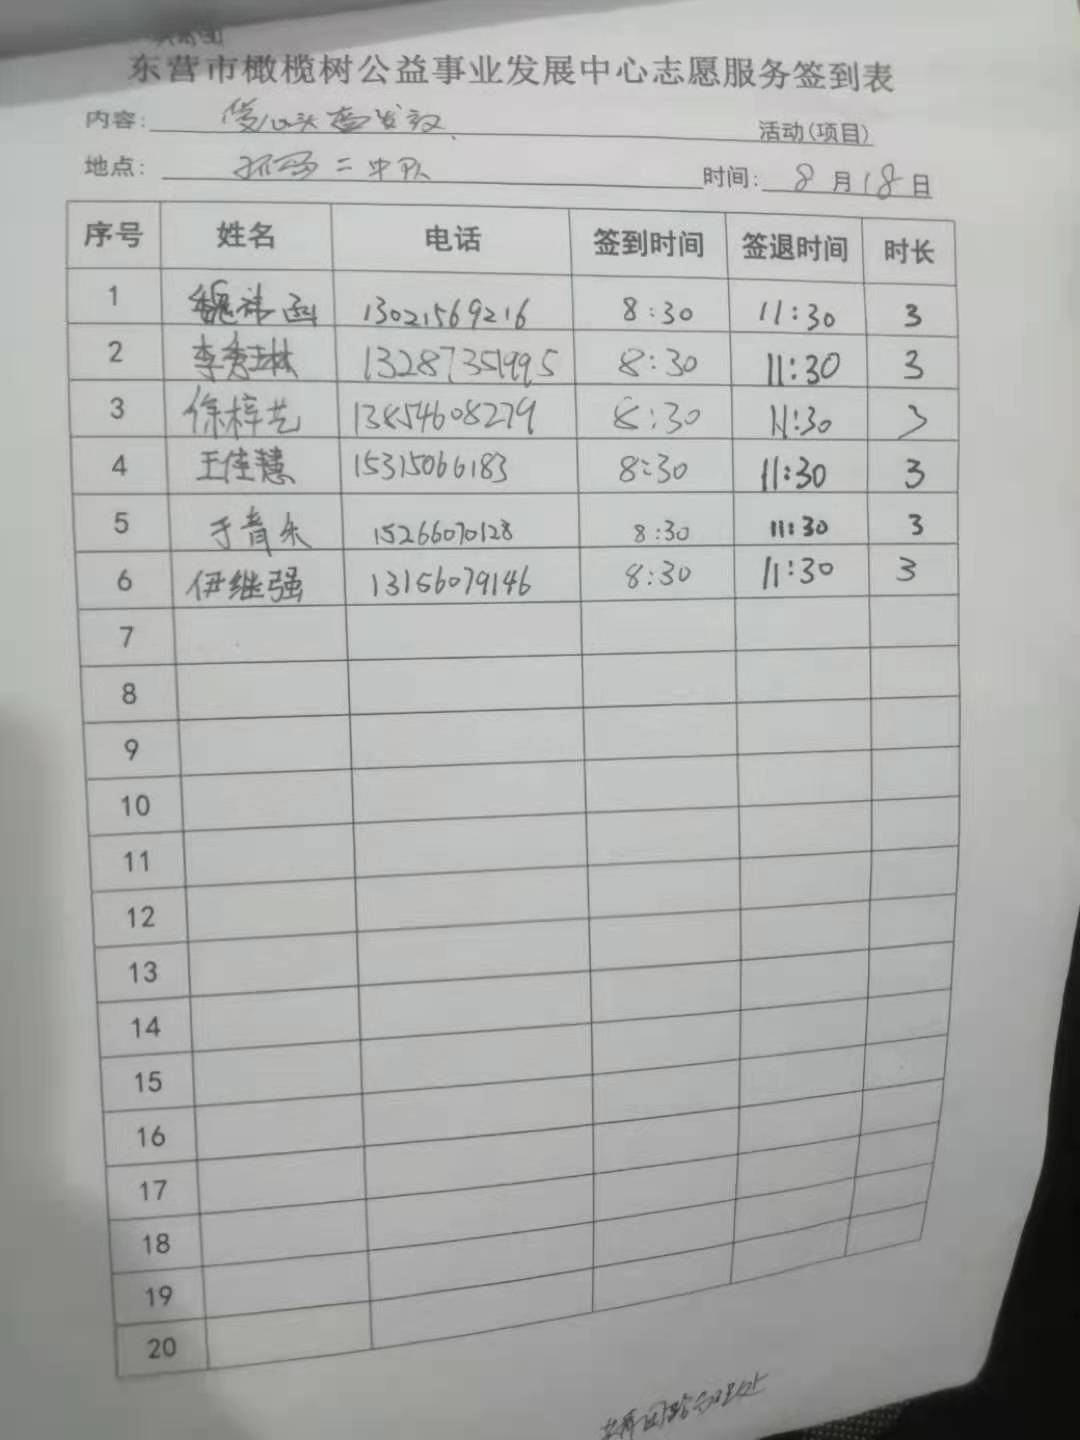 东营市橄榄树公益事业发展中心志愿服务签到表
内容: 爱心头盔发放 活动(项目)
地点: 二中队 时间: 8月18日
序号 姓名 电话 签到时间 签退时间 时长
1 魏祎函 13021569216 8:30 11:30 3
2 李秀琳 13287351995 8:30 11:30 3
3 徐梓艺 13854608279 8:30 11:30 3
4 王佳慧 15315066183 8:30 11:30 3
5 于音乐 15266070128 8:30 11:30 3
6 伊继强 13156079146 8:30 11:30 3
7
8
9
10
11
12
13
14
15
16
17
18
19
20